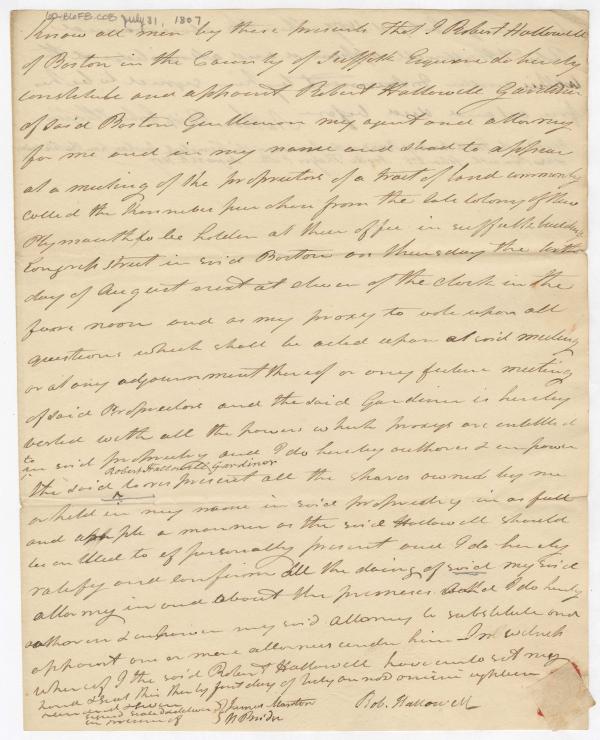 July 31, 1807
Know all men by these presents that I Robert Hallowell
of Boston in the County of Suffolk Esquire do hereby
constitute and appoint Robert Hallowell Gardiner
of said Boston Gentleman my agent and attorney
for me and in my name and stead to appear
at a meeting of the proprietors of a tract of land commonly
called the Kennebec purchase from the late Colony of New
Plymouth to be holden at their office in Suffolk buildings
Congress street in said Boston on thursday the sixth
day of August next at eleven of the clock in the
fore noon and as my proxy to vote upon all
questions which shall be acted upon at said meeting
or at any adjournment thereof or any future meeting
of said Proprietors and the said Gardiner is hereby
vested with all the powers which proxys are entitled
to
in said propriety and I do hereby authorise & empower
Robert Hallowell Gardiner
the said to represent all the shares owned by me
or held in my name in said propriety in as full
and ample a manner as the said Hallowell should
be entitled to if personally present and I do hereby
ratify and confirm all the doing of said my said
attorney in and about the premises and I do hereby
authorise & empower my said attorney to substitute and
appoint one or more attorneys under him In witness
whereof I the said Robert Hallowell have unto set my
hand & seal this thirty first day of July anno domini eighteen
hundred & seven
signed sealed & delivered } James Marston
in presence of
Rob. Hallowell